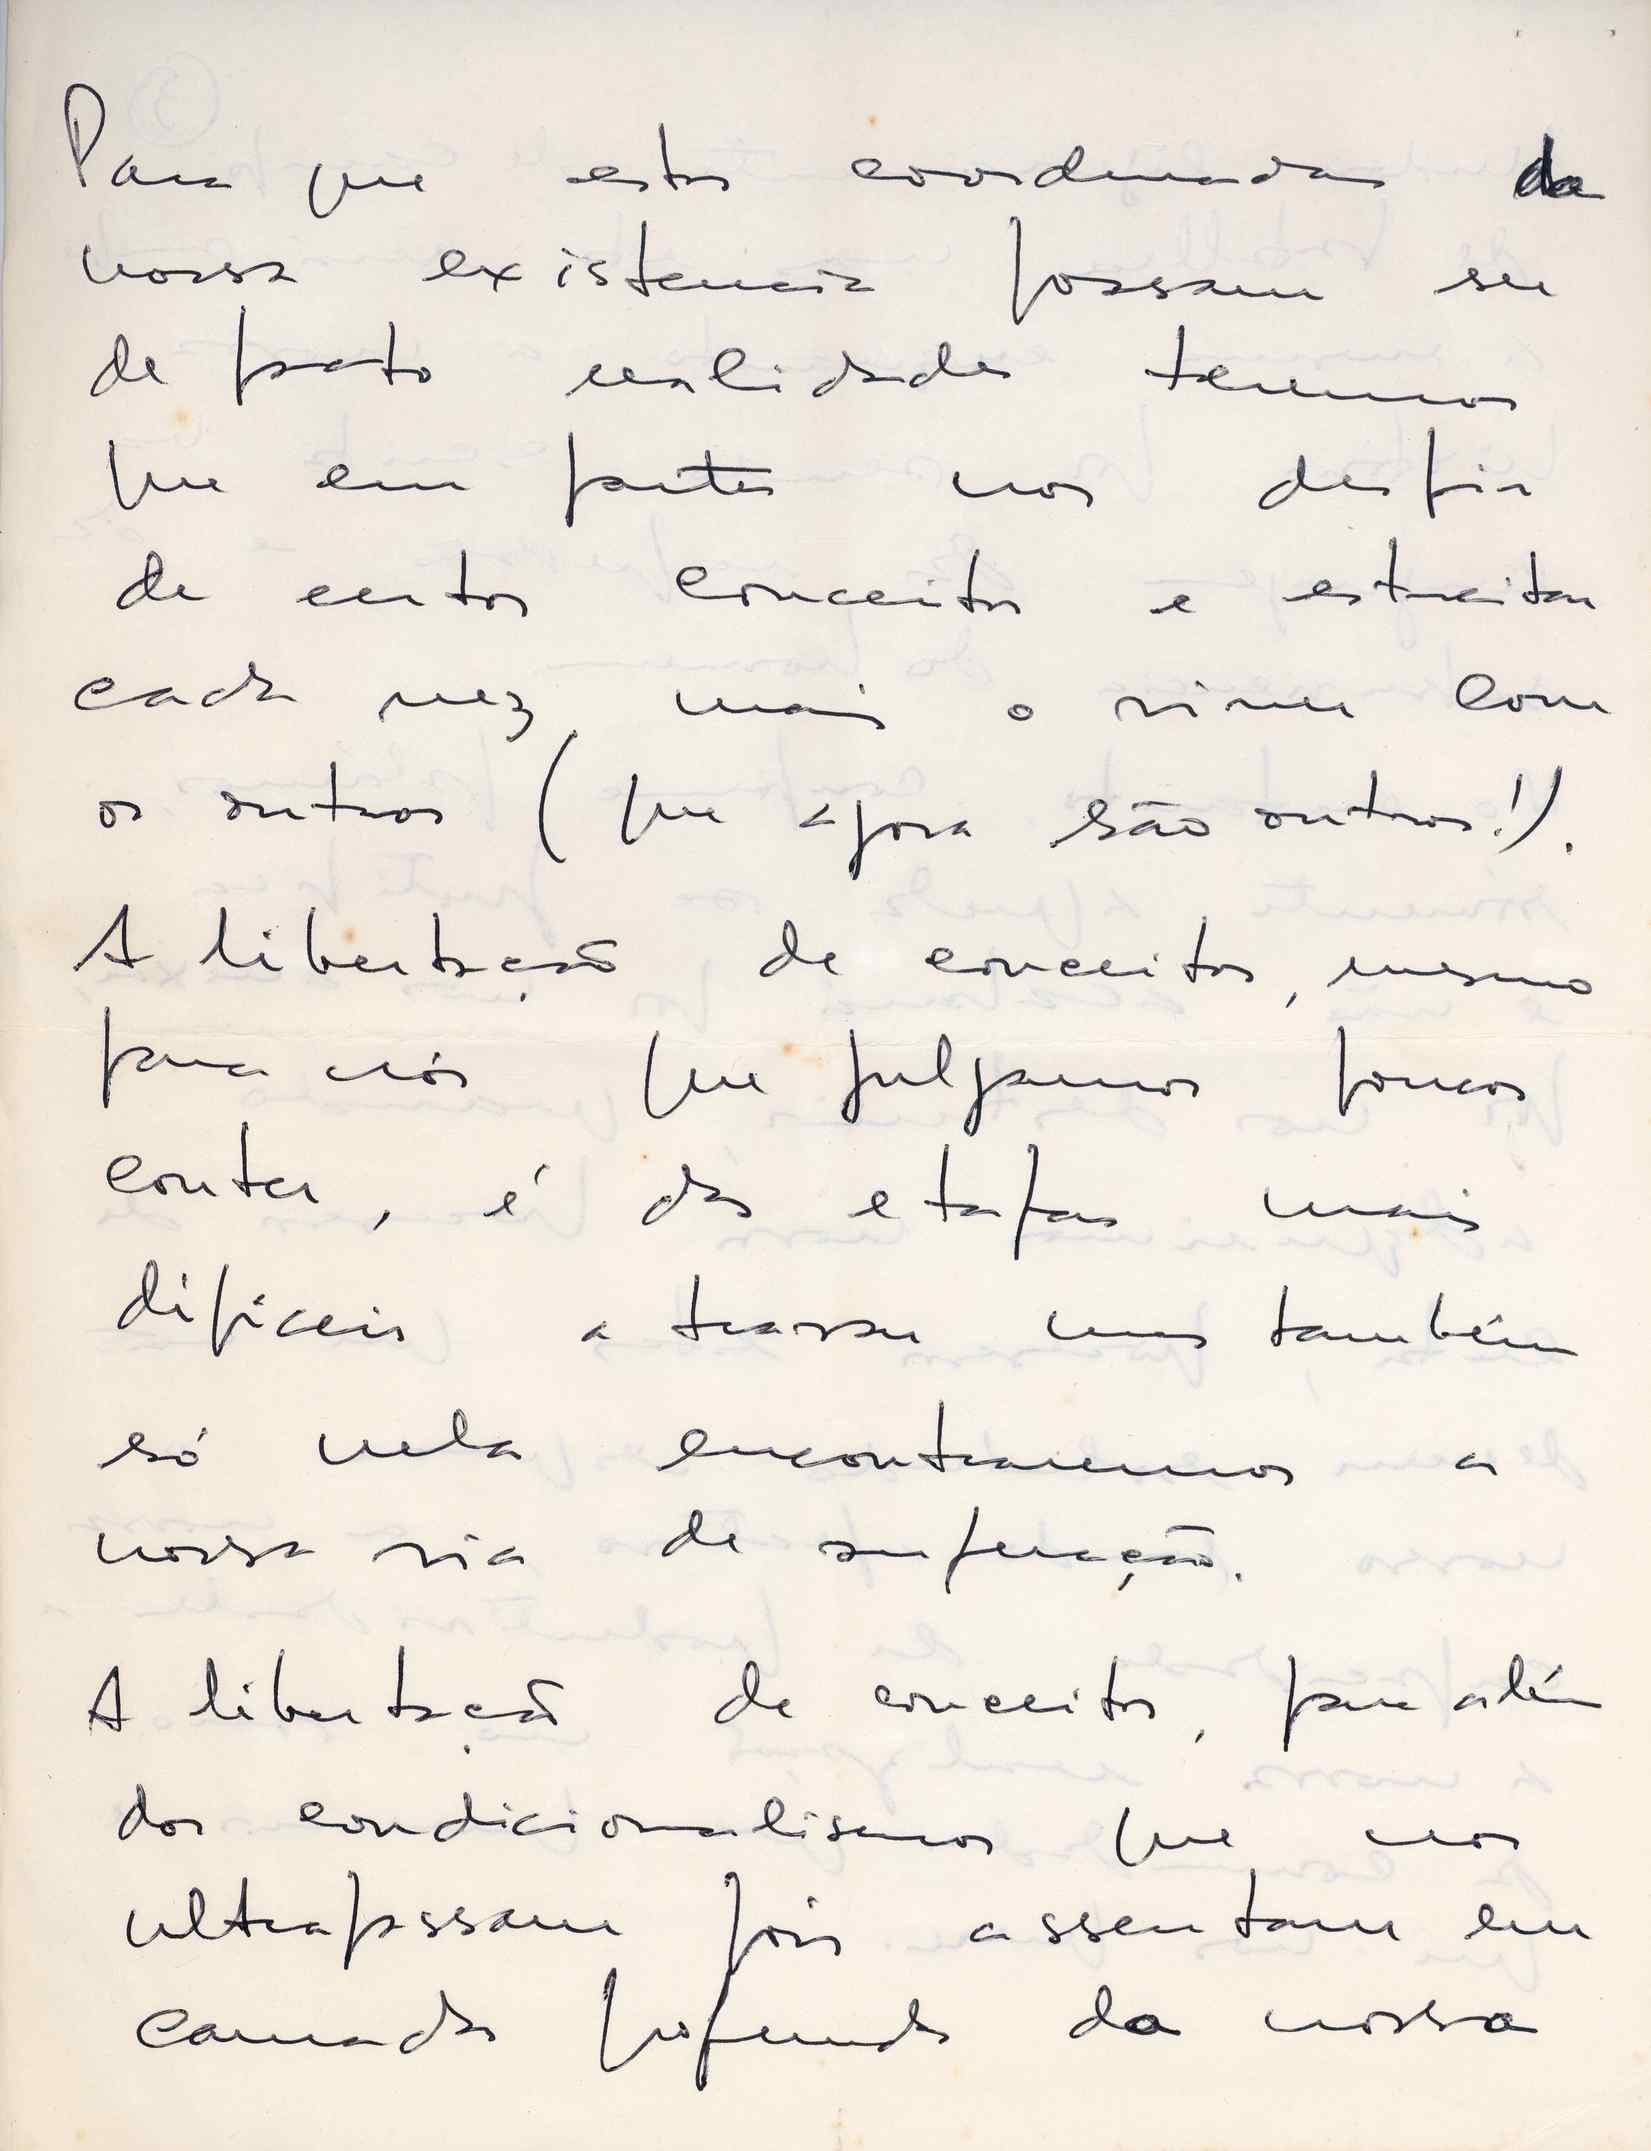 Para que estas coordenadas da
nossa existencia possam ser
de facto realidades teremos
que em partes nos despir
de certos conceitos e estreitar
cada vez mais o viver com
os outros (que agora são outros!).
A libertação de conceitos, mesmo
para nós que julgamos poucos
conter, é das etapas mais
difíceis a travar mas também
só nela encontraremos a
nossa via de superação.
A libertação de conceitos, para além
dos condicionalismos que nos
ultrapassam pois assentam em
camadas profundas da nossa